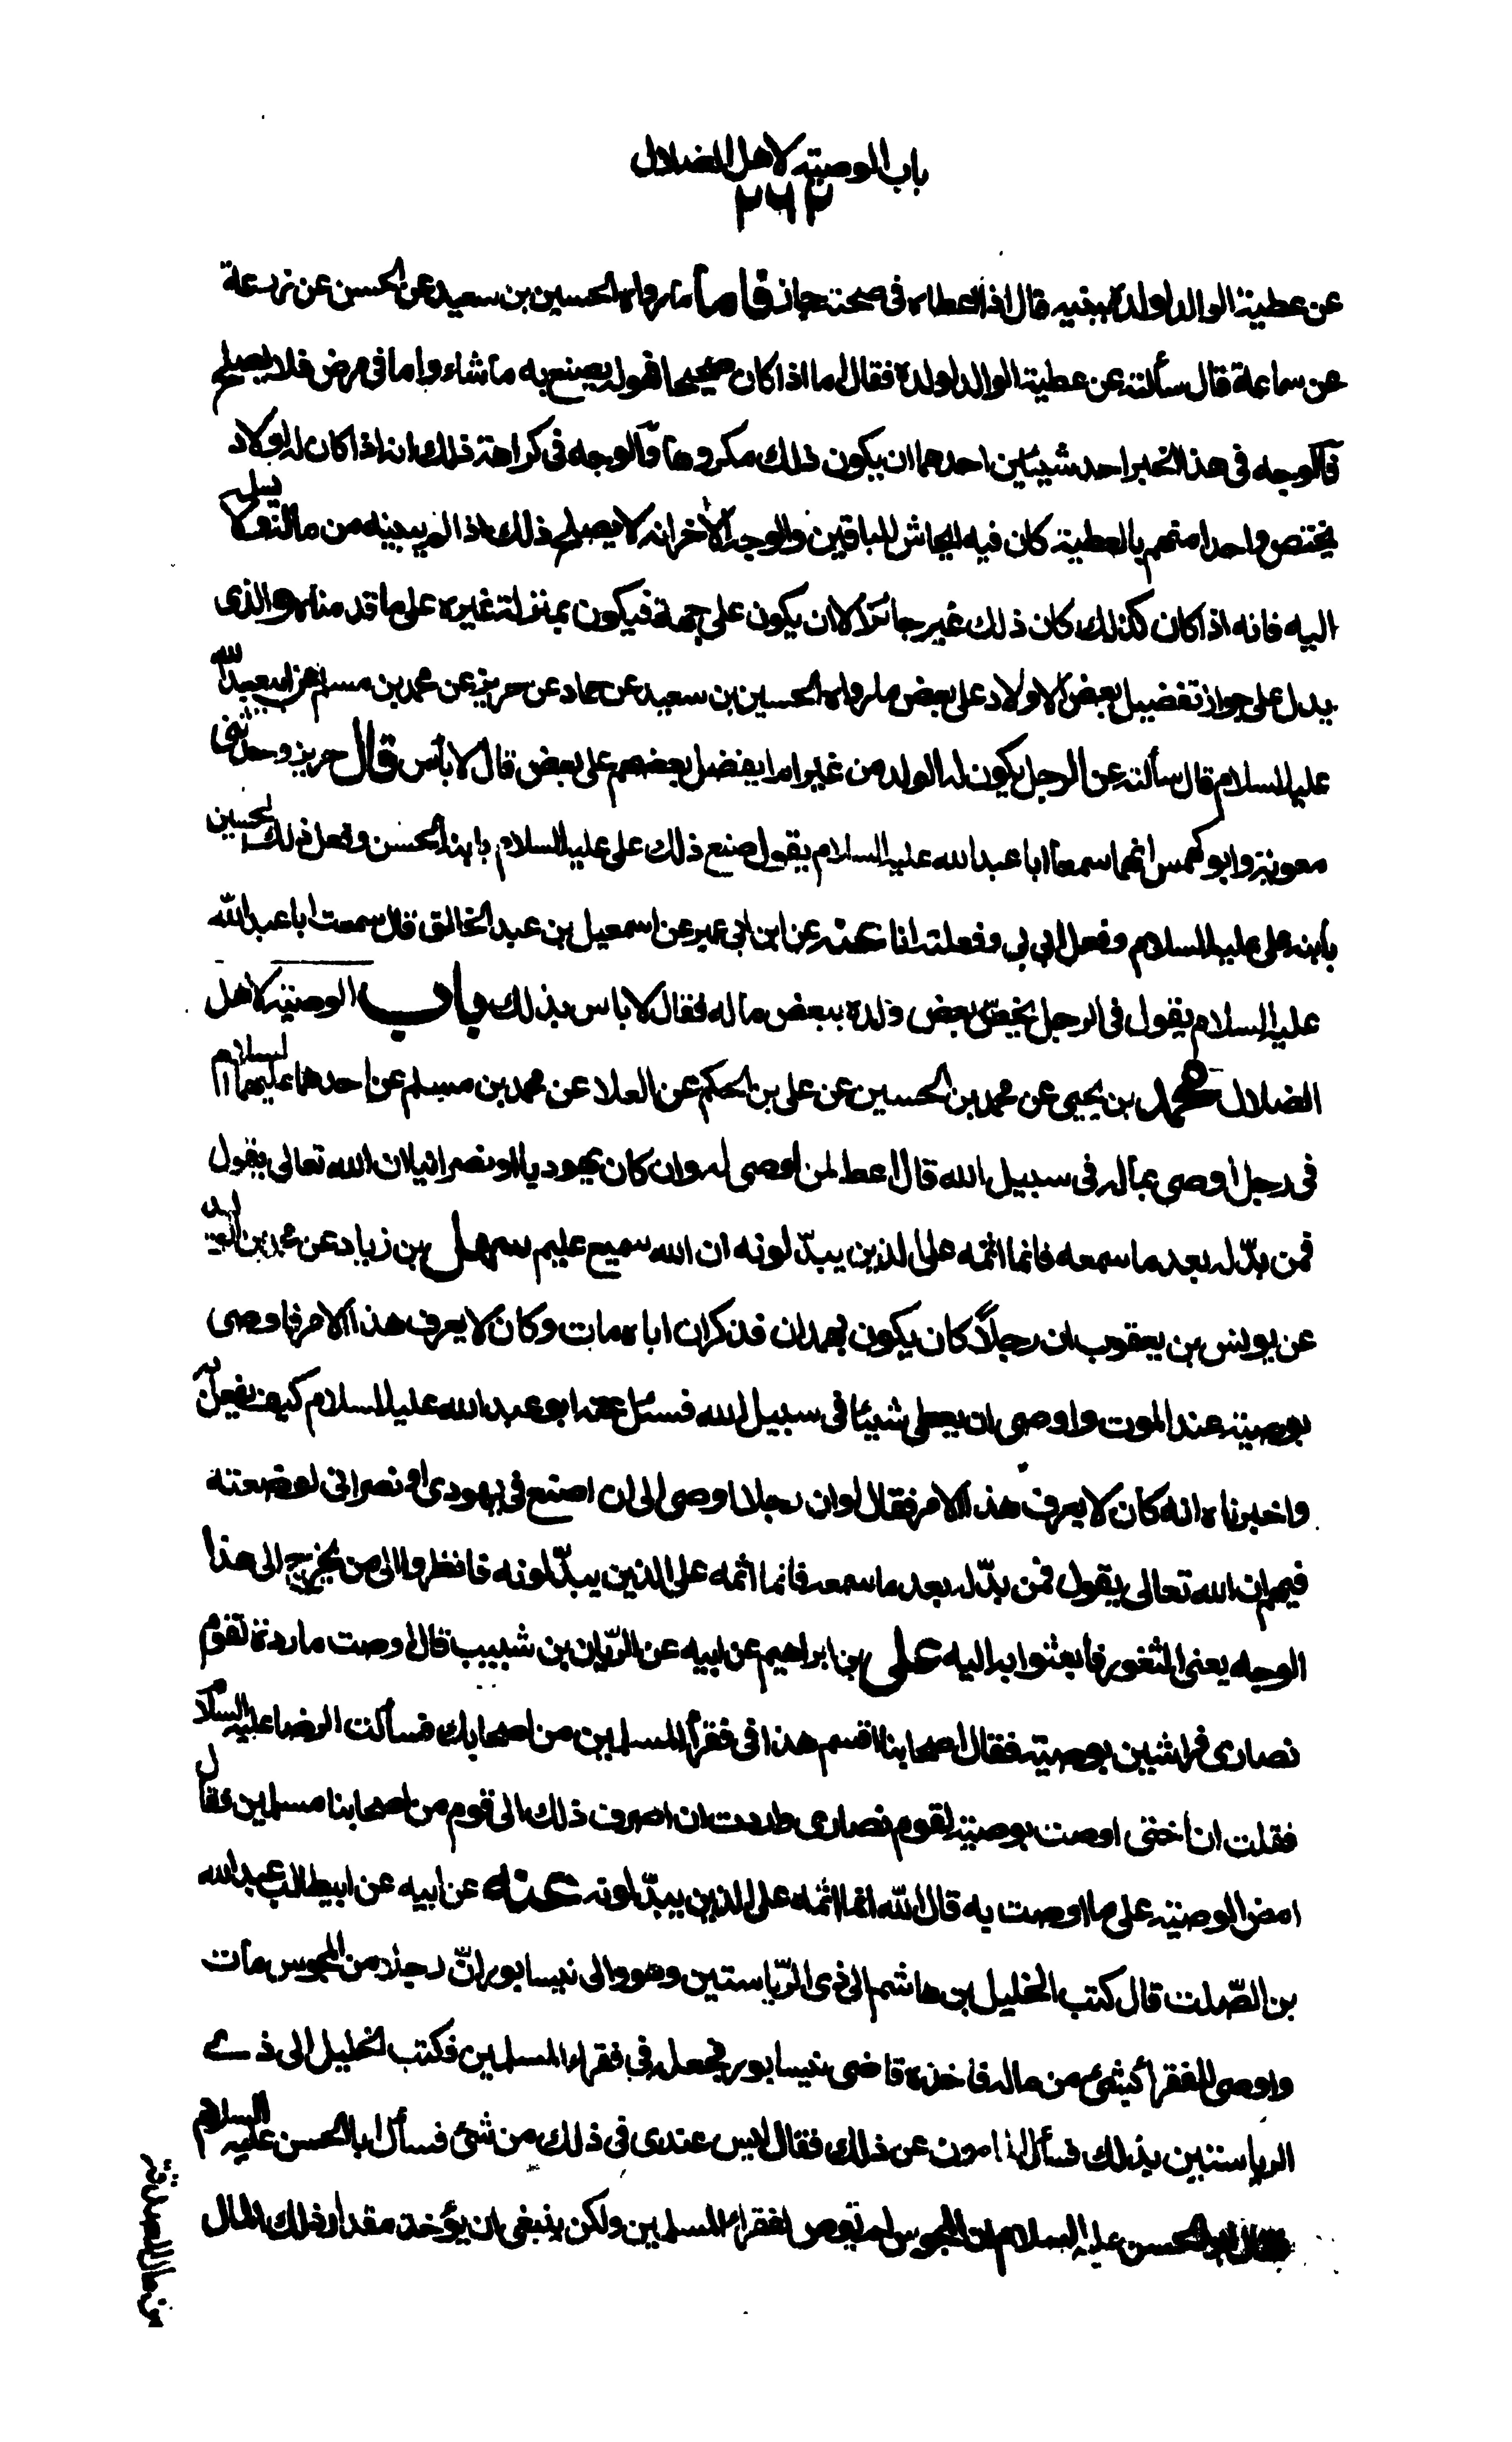 باب الوصية لاهل الضلال
٢٦٢
عن عطية الوالد لولده ببينه قال اذا اعطاه فى صحته جاز فاما ما رواه الحسين بن سعيد عن الحسن عن زرعة
عن سماعة قال سألته عن عطية الوالد لولده فقال اما اذا كان صحيحا فهو له يصنع به ما شاء واما فى مرض فلا يصلح
فالوجه فى هذا الخبر احد شيئين احدهما ان يكون ذلك مكروها والوجه فى كراهة ذلك انه اذا كان له اولاد
يختص واحدا منهم بالعطية كان فيه ايحاش للباقين والوجه الآخر انه لا يصلح ذلك اذا لم يبينه من ماله ولا يسلمه
اليه فانه اذا كان كذلك كان ذلك غير جائز الا ان يكون على جهة فيكون بمنزلة غيره على ما قدمناه والذى
يدل على جواز تفضيل بعض الاولاد على بعض ما رواه الحسين بن سعيد عن حماد عن حريز عن محمد بن مسلم عن ابى عبد الله
عليه السلام قال سألته عن الرجل يكون له الولد من غير ام ايفضل بعضهم على بعض قال لا بأس قال حريز وحدثنى
معوية وابو كهمس انهما سمعا ابا عبد الله عليه السلام يقول صنع ذلك على عليه السلام بابنه الحسن وفعل ذلك الحسين
بابنه على عليه السلام وفعل ابى بى وفعلته انا عنه عن ابن ابى عمير عن اسمعيل بن عبد الخالق قال سمعت ابا عبد الله
عليه السلام يقول فى الرجل يخص بعض ولده ببعض ماله فقال لا باس بذلك باب الوصية لاهل
الضلال محمد بن يحيى عن محمد بن الحسين عن على بن الحكم عن العلا عن محمد بن مسلم عن احدهما عليهما السلام
فى رجل اوصى بماله فى سبيل الله قال اعط لمن اوصى له وان كان يهوديا او نصرانيا لان الله تعالى يقول
فمن بدّله بعد ما سمعه فانما اثمه على الذين يبدّلونه ان الله سميع عليم سهل بن زياد عن محمد بن الوليد
عن يونس بن يعقوب ان رجلاً كان يكون بهمدان فذكر ان اباه مات وكان لا يعرف هذا الامر فاوصى
بوصية عند الموت واوصى ان يعطى شيئا فى سبيل الله فسئل عنه ابو عبد الله عليه السلام كيف يفعل به
واخبرناه انه كان لا يعرف هذا الامر فقال لو ان رجلا اوصى الى ان اصنع فى يهودى او نصرانى لوضعته
فيهم ان الله تعالى يقول فمن بدّله بعد ما سمعه فانما اثمه على الذين يبدّلونه فانظروا الى من يخرج الى هذا
الوجه يعنى الثغور فابعثوا به اليه على بن ابراهيم عن ابيه عن الريّان بن شبيب قال اوصت ماردة لقوم
نصارى فراشين بوصية فقال اصحابنا اقسم هذا فى فقرأ المسلمين من اصحابك فسألت الرضا عليه السلام
فقلت ان اختى اوصت بوصية لقوم نصارى واردت ان اصرف ذلك الى قوم من اصحابنا مسلمين فقال
امض الوصية على ما اوصت به قال الله انما اثمه على الذين يبدّلونه عنه عن ابيه عن ابيطالب عبد الله
بن الصّلت قال كتب الخليل بن هاشم الى ذى الرّياستين وهو والى نيسابور انّ رجلا من المجوس مات
واوصى للفقرأ بشئ من ماله فاخذه قاضى نيسابور فجعله فى فقراء المسلمين فكتب الخليل الى ذى
الرياستين بذلك فسأل المامون عن ذلك فقال ليس عندى فى ذلك من شئ فسأل ابا الحسن عليه السلام
فقال ابو الحسن عليه السلام ان المجوس لم يوص لفقراء المسلمين ولكن ينبغى ان يؤخذ مقدار ذلك المال
من مال الصدقة